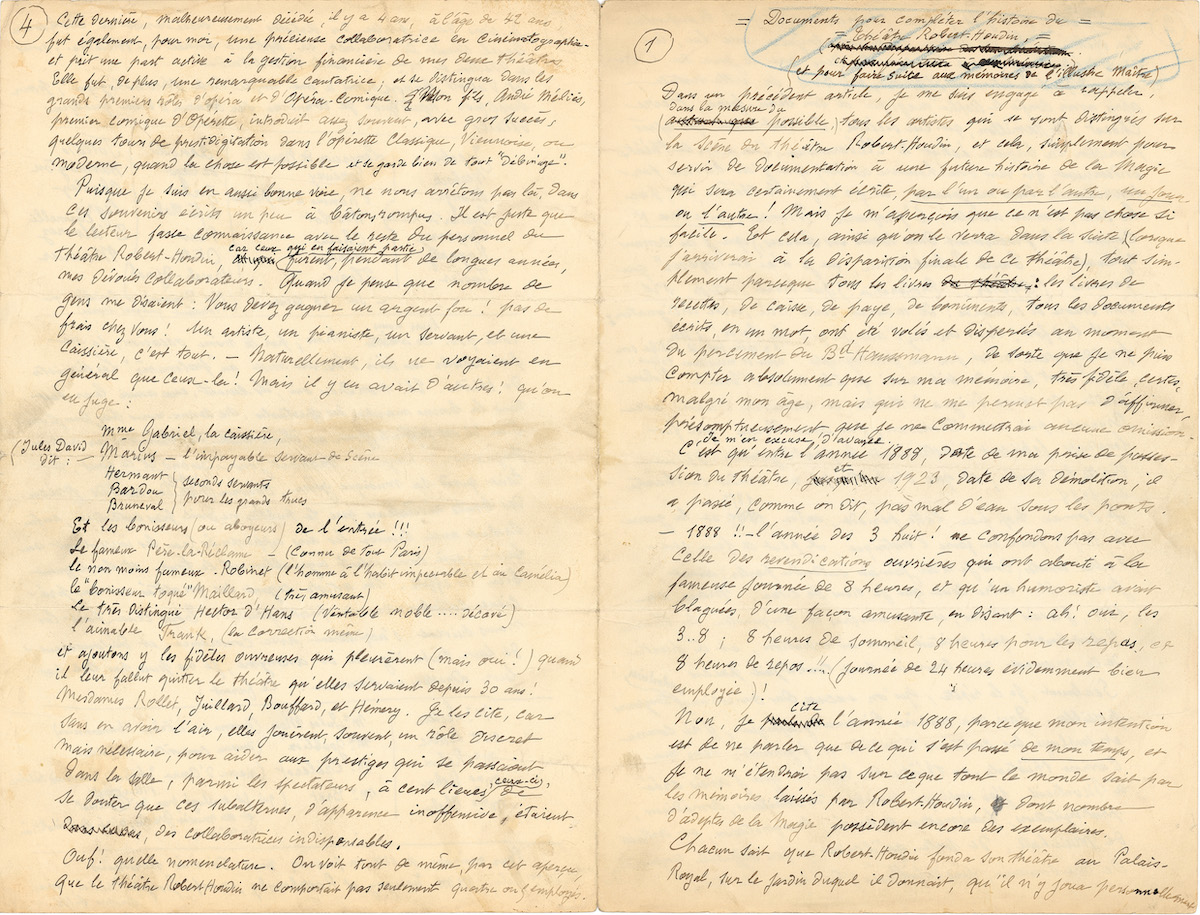 4
Cette dernière, malheureusement décédée, il y a 4 ans, à l'âge de 42 ans
fut également, pour moi, une précieuse collaboratrice en Cinématographie
et prit une part active à la gestion financière de mes deux théâtres.
Elle fut, de plus, une remarquable cantatrice, et se distingua dans les
grands premiers rôles d'opéra et d'Opéra-Comique. Mon fils, André Méliès,
premier comique d'Opérette, introduit assez souvent, avec gros succès,
quelques tours de prestidigitation dans l'opérette Classique, Viennoise, ou
moderne, quand la chose est possible et se garde bien de tout "Débinage".
Puisque je suis en aussi bonne voie, ne nous arrêtons pas là, dans
ces souvenirs écrits un peu à bâtons rompus. Il est juste que
le lecteur fasse connaissance avec le reste du personnel du
théâtre Robert-Houdin, car ceux qui en faisaient partie furent, pendant de longues années,
mes dévoués collaborateurs. Quand je pense que nombre de
gens me disaient : Vous devez gagner un argent fou ! pas de
frais chez vous ! Un artiste, un pianiste, un servant, et une
caissière, c'est tout. — Naturellement, ils ne voyaient en
général que ceux-là ! Mais il y en avait d'autres ! qu'on
en juge :
Mme Gabriel, la caissière,
(Jules David dit : — Marius — l'impayable servant de Scène
Hermant
Bardou
Bruneval
seconds servants
pour les grands trucs
Et les bonisseurs (ou aboyeurs) de l'entrée !!!
Le fameux Père-la-Réclame — (Connu de tout Paris)
le non moins fameux Robinet (l'homme à l'habit impeccable et au Camélia)
le "bonisseur toqué" Maillard, (très amusant)
Le très distingué Hector d'Hans (Véritable noble .... décavé)
l'aimable Frank, (la correction même)
et ajoutons y les fidèles ouvreuses qui pleurèrent (mais oui !) quand
il leur fallut quitter le théâtre qu'elles servaient depuis 30 ans !
Mesdames Rollet, Juillard, Bouffard, et Hémery. Je les cite, car
sans en avoir l'air, elles jouèrent, souvent, un rôle discret
mais nécessaire, pour aider aux prestiges qui se passaient
dans la salle, parmi les spectateurs, ceux-ci, à cent lieues de
se douter que ces subalternes, d'apparence inoffensive, étaient
des collaboratrices indispensables.
Ouf ! quelle nomenclature. On voit tout de même, par cet aperçu,
que le théâtre Robert-Houdin ne comportait pas seulement quatre ou 5 employés.
1
= Documents pour compléter l'histoire du =
= théâtre Robert-Houdin, =
(et pour faire suite aux mémoires de l'illustre Maître)
Dans un précédent article, je me suis engagé à rappeler,
(dans la mesure du possible,) tous les artistes qui se sont distingués sur
la scène du théâtre Robert-Houdin, et cela, simplement pour
servir de documentation à une future histoire de la Magie
qui sera certainement écrite, par l'un ou par l'autre, un jour
ou l'autre ! Mais je m'aperçois que ce n'est pas chose si
facile. Et cela, ainsi qu'on le verra dans la suite (lorsque
j'arriverai à la disparition finale de ce théâtre), tout sim-
plement parceque tous les livres : les livres de
recettes, de caisse, de paye, de boniments, tous les documents
écrits, en un mot, ont été volés et dispersés au moment
du percement du Bd Haussmann, de sorte que je ne puis
compter absolument que sur ma mémoire, très fidèle, certes,
malgré mon âge, mais qui ne me permet pas d'affirmer,
présomptueusement que je ne commettrai aucune omission.
Je m'en excuse d'avance.
C'est qu'entre l'année 1888, date de ma prise de posses-
sion du théâtre, et 1923, date de sa démolition, il
a passé, comme on dit, pas mal d'eau sous les ponts.
— 1888 !! — l'année des 3 huit ! ne confondons pas avec
celle des revendications ouvrières qui ont abouti à la
fameuse journée de 8 heures, et qu'un humoriste avait
blaguées, d'une façon amusante, en disant : ah ! oui, les
3..8 ; 8 heures de sommeil, 8 heures pour les repas, et
8 heures de repos..!!. (Journée de 24 heures évidemment bien
employée) !
Non, je cite l'année 1888, parce que mon intention
est de ne parler que de ce qui s'est passé de mon temps, et
je ne m'étendrai pas sur ce que tout le monde sait par
les mémoires laissés par Robert-Houdin, dont nombre
d'adeptes de la Magie possèdent encore des exemplaires.
Chacun sait que Robert-Houdin fonda son théâtre au Palais-
Royal, sur le jardin duquel il donnait, qu'il n'y joua personnellement